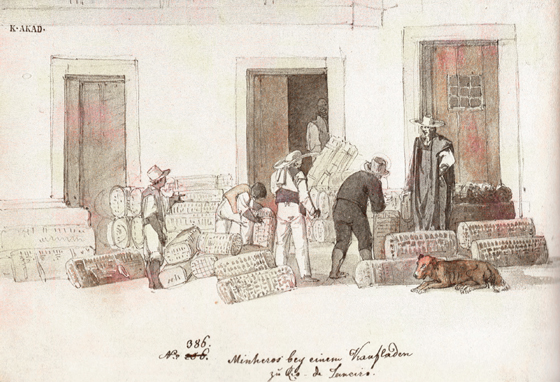 K·AKAD·
386.
No. Minheros bey einem Kaufladen
zü Ro. de Janeiro.